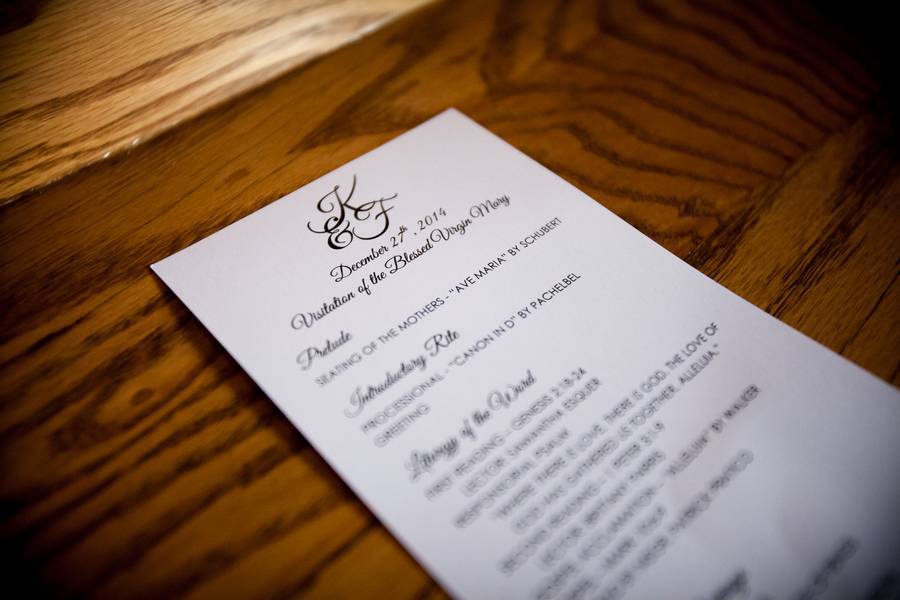 K
& F
December 27th, 2014
Visitation of the Blessed Virgin Mary
Prelude
SEATING OF THE MOTHERS - "AVE MARIA" BY SCHUBERT
Introductory Rite
PROCESSIONAL - "CANON IN D" BY PACHELBEL
GREETING
Liturgy of the Word
FIRST READING - GENESIS 2:18-24
LECTOR: SAMANTHA ESQUER
RESPONSORIAL PSALM
"WHERE THERE IS LOVE, THERE IS GOD, THE LOVE OF
GOD HAS GATHERED US TOGETHER, ALLELUIA."
SECOND READING - PETER 3:1-9
LECTOR: BRITTANY
ACCLAMATION - "ALLELUIA" BY WALKER